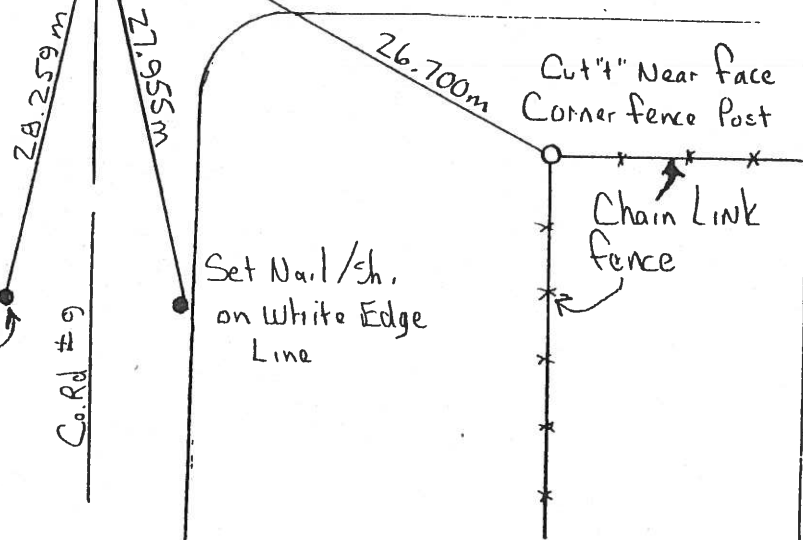 28.259m
27.955m
26.700m
Cut "t" Near face
Corner fence Post
Chain Link
fence
Set Nail/Sh.
on White Edge
Line
Co. Rd # 9